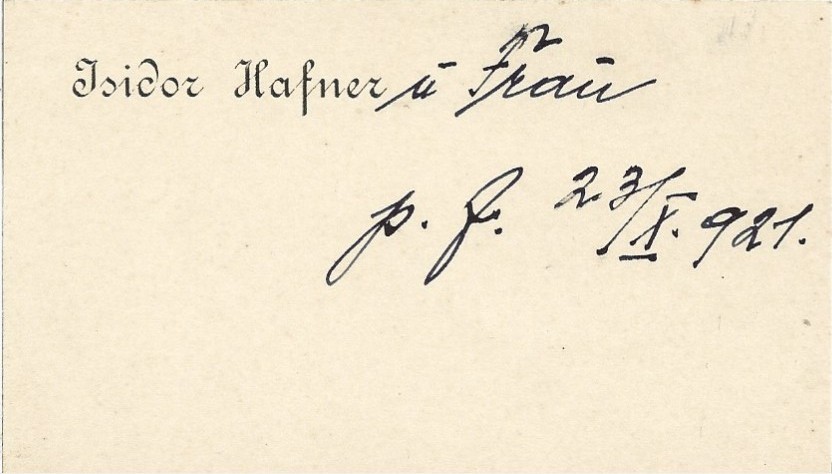 Isidor Hafner u Frau
p. f. 23/X. 921.